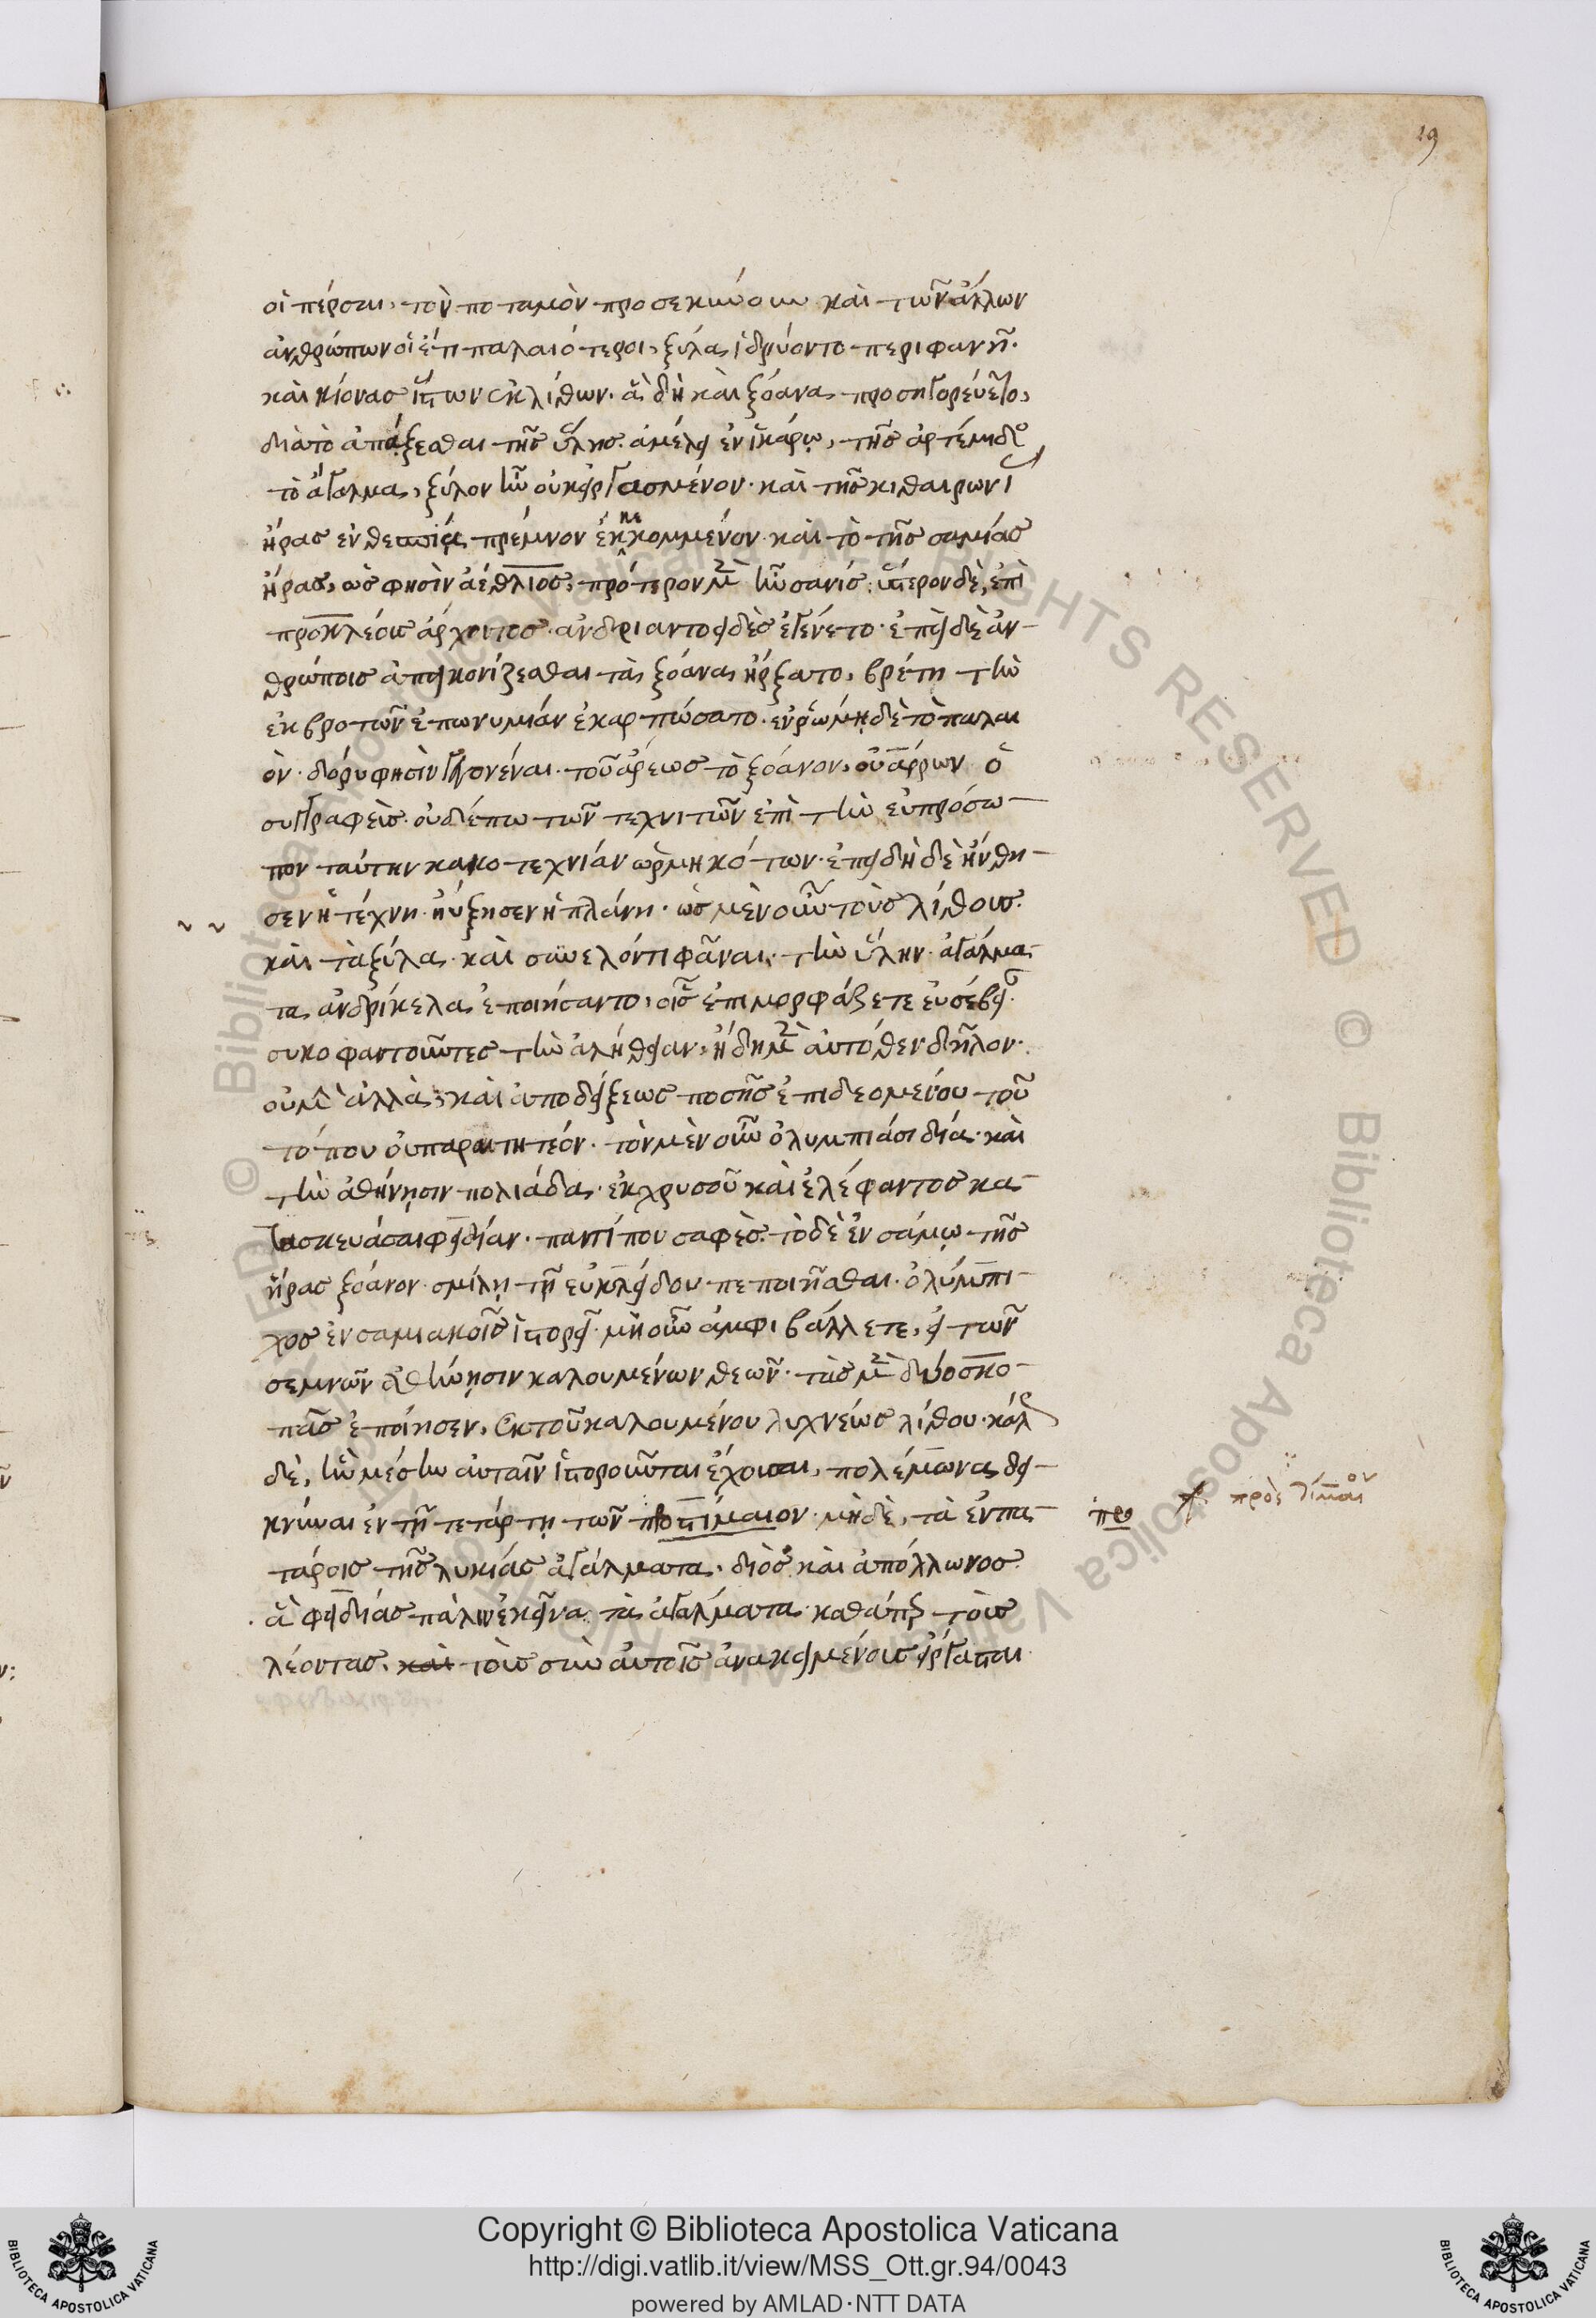 19
οἱ πέρσαι, τὸν ποταμὸν προσεκύνουν καὶ τῶν ἄλλων
ἀνθρώπων οἱ ἔτι παλαιότεροι, ξύλα ἱδρύοντο περιφανῆ.
καὶ κίονας ἵστων ἐκ λίθων. ἃ δὴ καὶ ξόανα προσηγορεύετο,
διὰ τὸ ἀπεξέσθαι τῆς ὕλης. ἀμέλει ἐν ἰκάρῳ, τῆς ἀρτέμιδος
τὸ ἄγαλμα, ξύλον ἦν οὐκ εἰργασμένον. καὶ τῆς κιθαιρωνί
ἥρας ἐν θεσπίᾳ πρέμνον ἐκκεκομμένον. καὶ τὸ τῆς σαμίας
ἥρας, ὥς φησιν ἀέθλιος, πρότερον μὲν ἦν σανίς. ὕστερον δὲ, ἐπὶ
προκλέους ἄρχοντος. ἀνδριαντοειδὲς ἐγένετο. ἐπεὶ δὲ ἀν-
θρώποις ἀπεικονίζεσθαι τὰ ξόανα ἤρξατο, βρέτη τὴν
ἐκ βροτῶν ἐπωνυμίαν ἐκαρπώσατο. ἐν ῥώμῃ δὲ τὸ παλαι
ὸν. δόρυ φησὶν γεγονέναι. τοῦ ἄρεως τὸ ξόανον, οὐάρρων ὁ
συγγραφεὺς. οὐδέπω τῶν τεχνιτῶν ἐπὶ τὴν εὐπρόσω-
πον ταύτην κακοτεχνίαν ὡρμηκότων. ἐπειδὴ δὲ ἤνθη-
σεν ἡ τέχνη. ηὔξησεν ἡ πλάνη. ὡς μὲν οὖν τοὺς λίθους.
καὶ τὰ ξύλα. καὶ συνελόντι φάναι. τὴν ὕλην. ἀγάλμα-
τα ἀνδρίκελα ἐποιήσαντο, οἷς ἐπιμορφάζετε εὐσέβειαν.
συκοφαντοῦντες τὴν ἀλήθειαν, ἤδη μὲν αὐτόθεν δῆλον.
οὐ μὴν ἀλλὰ, καὶ ἀποδείξεως ποσῆς ἐπιδεομένου τοῦ
τόπου οὐ παραιτητέον. τὸν μὲν οὖν ὀλυμπιάσι δία. καὶ
τὴν ἀθήνησιν πολιάδα. ἐκ χρυσοῦ καὶ ἐλέφαντος κα-
τασκευάσαι φειδίαν. παντί που σαφὲς. τὸ δὲ ἐν σάμῳ τῆς
ἥρας ξόανον. σμίλῃ τῇ εὐκλείδου πεποιῆσθαι. ὀλύμπι-
χος ἐν σαμιακοῖς ἱστορεῖ. μὴ οὖν ἀμφιβάλλετε, εἰ τῶν
σεμνῶν ἀθήνησιν καλουμένων θεῶν. τὰς μὲν δύο σκο-
πᾶς ἐποίησεν, ἐκ τοῦ καλουμένου λυχνέως λίθου. κάλως
δὲ, ἣν μέσην αὐταῖν ἱστοροῦνται ἔχουσαι, πολέμωνα δει-
κνύναι ἐν τῇ τετάρτῃ τῶν ποτίμαιον. μὴ δὲ, τὰ ἐν πα-
τάροις τῆς λυκίας ἀγάλματα, διὸς καὶ ἀπόλλωνος.
ἃ φειδίας πάλιν ἐκεῖνα τὰ ἀγάλματα. καθάπερ τοὺς
λέοντας. καὶ τοὺς σὺν αὐτοῖς ἀνακειμένους εἴργασται
πρ
πρὸς τίμαιον
Copyright © Biblioteca Apostolica Vaticana
http://digi.vatlib.it/view/MSS_Ott.gr.94/0043
powered by AMLAD·NTT DATA